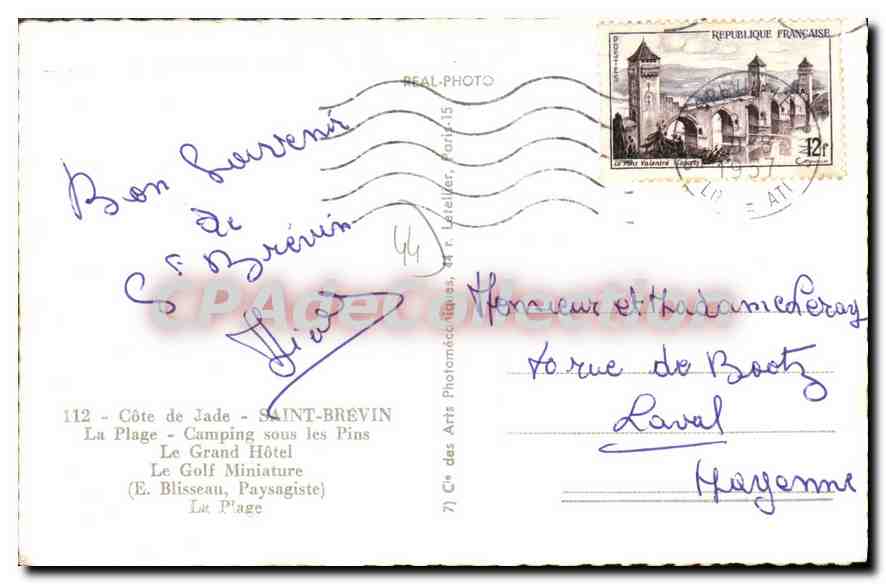 REAL-PHOTO
REPUBLIQUE FRANÇAISE
POSTES
12f
Le Pont Valentré Cahors
1957
Bon Souvenir
de
St Brévin
44
CPAdeCollection
Monsieur et Madame Leray
rue de Bootz
Laval
Mayenne
112 - Côte de Jade - SAINT-BRÉVIN
La Plage - Camping sous les Pins
Le Grand Hôtel
Le Golf Miniature
(E. Blisseau, Paysagiste)
La Plage
7) Cie des Arts Photomécaniques, 44 r. Letellier, Paris-15